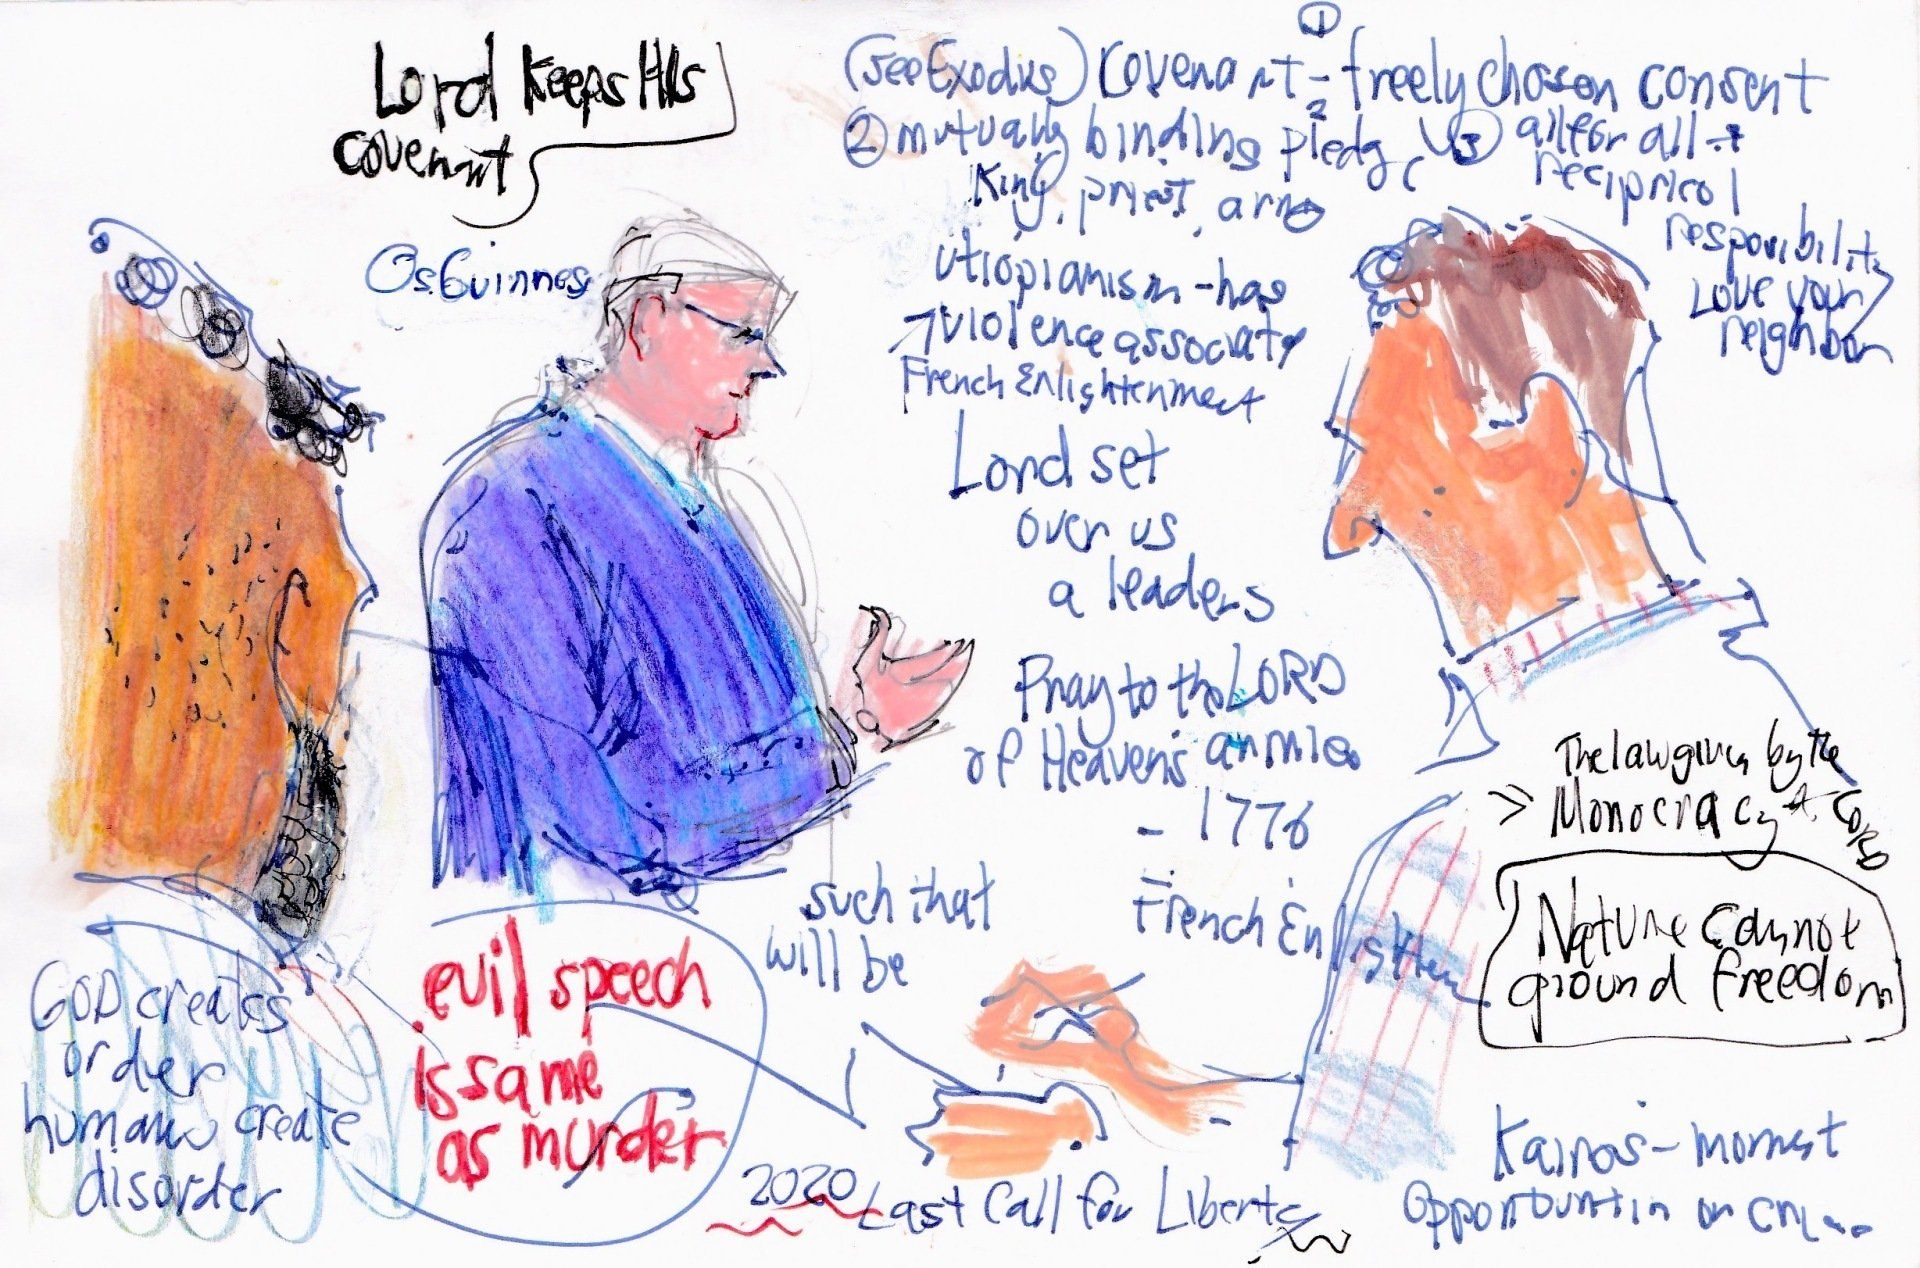 Lord Keeps HIs
covenant
Os Guinness
①
(see Exodus) Covenant - freely chosen consent
② mutually binding pledge ③ all for all
King, priest,
recipricol
responsibility
Love your
neighbor
utiopianism - has
violence associat
French Enlightenment
Lord set
over us
a leaders
Pray to the LORD
of Heaven's armies
- 1776
- French Enlighten
such that
will be
The law given by the
>> Monocracy LORD
Nature cannot
ground freedom
GOD creates
order
humans create
disorder
evil speech
is same
as murder
2020 Last Call for Liberty
Kairos - moment
opportun